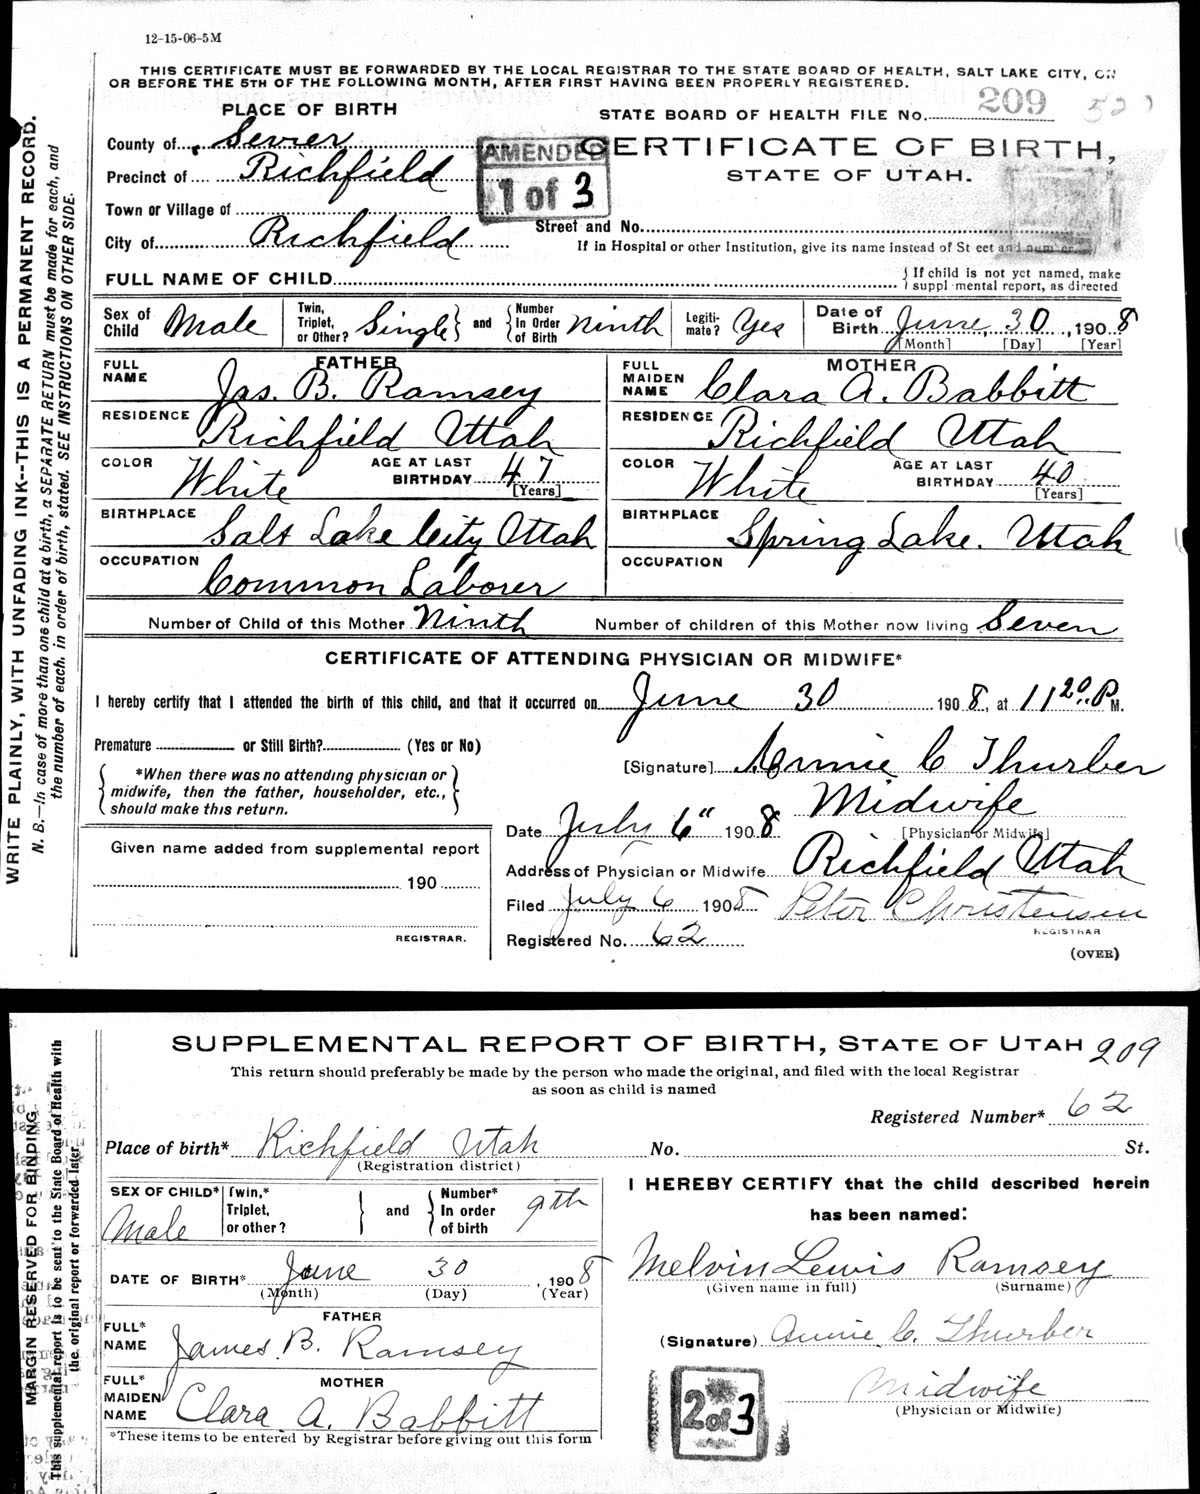 12-15-06-5M
THIS CERTIFICATE MUST BE FORWARDED BY THE LOCAL REGISTRAR TO THE STATE BOARD OF HEALTH, SALT LAKE CITY, ON
OR BEFORE THE 5TH OF THE FOLLOWING MONTH, AFTER FIRST HAVING BEEN PROPERLY REGISTERED.
WRITE PLAINLY, WITH UNFADING INK--THIS IS A PERMANENT RECORD.
N. B.—In case of more than one child at a birth, a SEPARATE RETURN must be made for each, and
the number of each, in order of birth, stated. SEE INSTRUCTIONS ON OTHER SIDE.
PLACE OF BIRTH
STATE BOARD OF HEALTH FILE No. 209
County of Sevier
AMENDED
1 of 3
CERTIFICATE OF BIRTH,
STATE OF UTAH.
Precinct of Richfield
Town or Village of
Street and No.
City of Richfield
If in Hospital or other Institution, give its name instead of St eet and number.
FULL NAME OF CHILD
If child is not yet named, make
suppl mental report, as directed
Sex of Child Male
Twin, Triplet, or Other? Single and Number In Order of Birth Ninth
Legiti-mate? Yes
Date of Birth June 30, 1908
[Month] [Day] [Year]
FATHER
FULL NAME Jas. B. Ramsey
MOTHER
FULL MAIDEN NAME Clara A. Babbitt
RESIDENCE Richfield Utah
RESIDENCE Richfield Utah
COLOR White AGE AT LAST BIRTHDAY 47 [Years]
COLOR White AGE AT LAST BIRTHDAY 40 [Years]
BIRTHPLACE Salt Lake City Utah
BIRTHPLACE Spring Lake. Utah
OCCUPATION Common Laborer
OCCUPATION
Number of Child of this Mother Ninth Number of children of this Mother now living Seven
CERTIFICATE OF ATTENDING PHYSICIAN OR MIDWIFE*
I hereby certify that I attended the birth of this child, and that it occurred on June 30 1908, at 11 20 P M.
Premature or Still Birth? (Yes or No)
[Signature] Annie C Thurber
*When there was no attending physician or
midwife, then the father, householder, etc.,
should make this return.
Midwife
Date July 6" 1908 [Physician or Midwife]
Given name added from supplemental report
Address of Physician or Midwife Richfield Utah
190
Filed July 6 1908 Peter Christensen
REGISTRAR
REGISTRAR.
Registered No. 62
(OVER)
SUPPLEMENTAL REPORT OF BIRTH, STATE OF UTAH 209
This return should preferably be made by the person who made the original, and filed with the local Registrar
as soon as child is named
MARGIN RESERVED FOR BINDING
This supplemental report is to be sent to the State Board of Health with
the original report or forwarded later
Registered Number* 62
Place of birth* Richfield Utah No. St.
(Registration district)
SEX OF CHILD* Male
Twin,* Triplet, or other? and Number* In order of birth 9th
I HEREBY CERTIFY that the child described herein
has been named:
DATE OF BIRTH* June 30, 1908
(Month) (Day) (Year)
Melvin Lewis Ramsey
(Given name in full) (Surname)
FATHER
FULL* NAME James. B. Ramsey
(Signature) Annie C. Thurber
MOTHER
FULL* MAIDEN NAME Clara A. Babbitt
2 of 3
Midwife
(Physician or Midwife)
*These items to be entered by Registrar before giving out this form